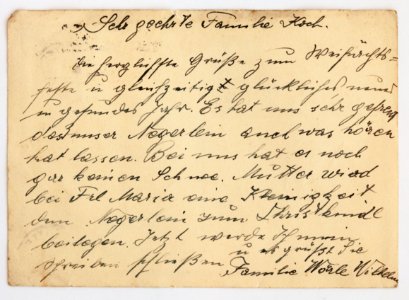 Sehr geehrte Familie Koch.
Die herzlichste Grüße zum Weihnachts=
feste u gleichzeitigt glückliches neues
u gesundes Jahr. Es hat uns sehr gefreut
das unser Negerlein auch was hören
hat lassen. Bei uns hat es noch
gar keinen Schnee. Mutter wird
bei Frl Maria eine Kleinigkeit
dem Negerlein zum Christkindl
beilegen. Jetzt werde
u es grüßt Sie
schreiben schließen Familie